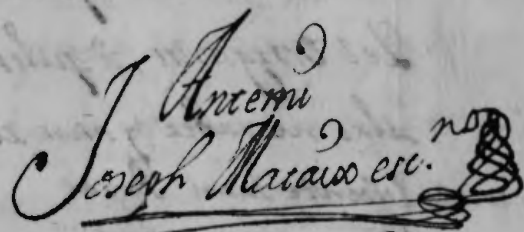 Antemi
Joseph Mataux esc.no